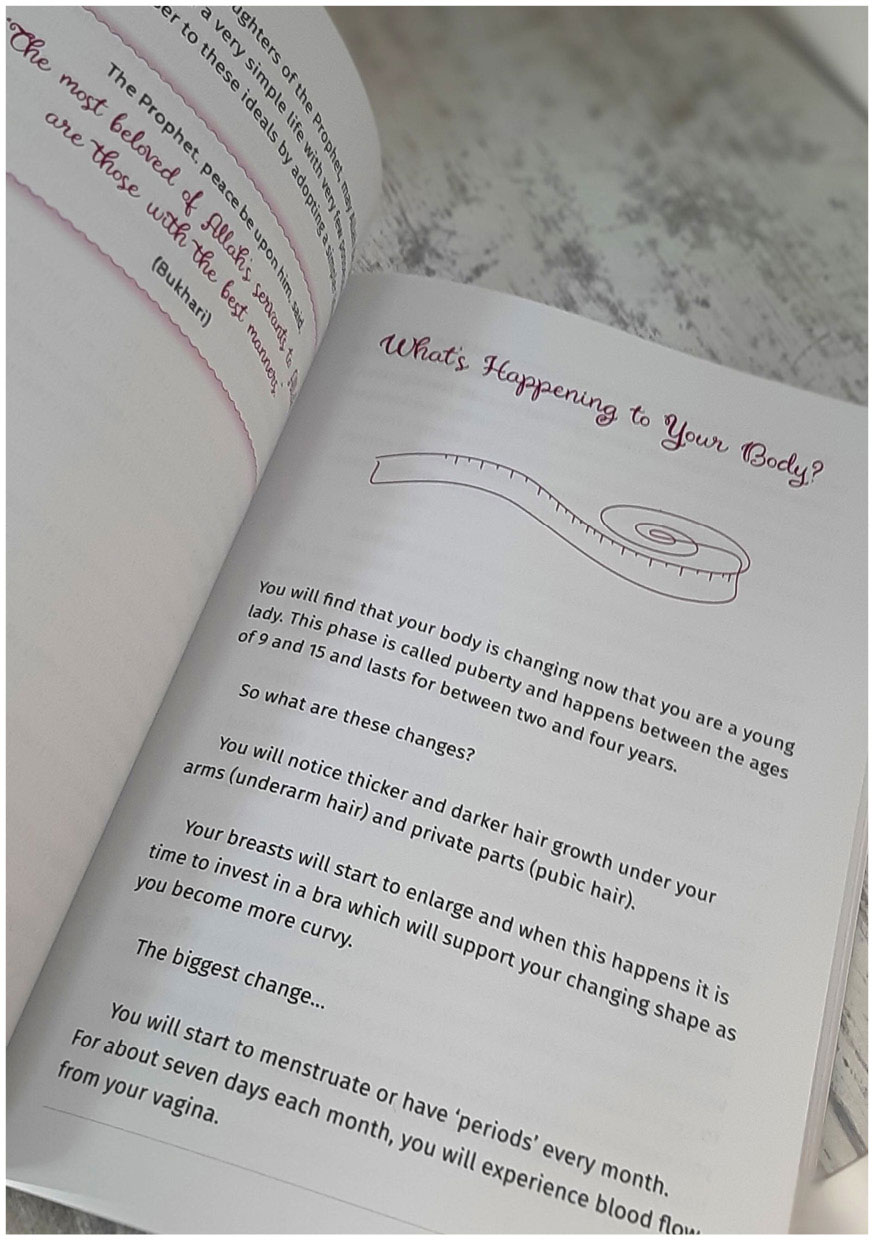 ughters of the Prophet, may
a very simple life with very few
er to these ideals by adopting a
The Prophet, peace be upon him, said,
'The most beloved of Allah's servants to
are those with the best manners.'
(Bukhari)
What's Happening to Your Body?
You will find that your body is changing now that you are a young
lady. This phase is called puberty and happens between the ages
of 9 and 15 and lasts for between two and four years.
So what are these changes?
You will notice thicker and darker hair growth under your
arms (underarm hair) and private parts (pubic hair).
Your breasts will start to enlarge and when this happens it is
time to invest in a bra which will support your changing shape as
you become more curvy.
The biggest change...
You will start to menstruate or have 'periods' every month.
For about seven days each month, you will experience blood flow
from your vagina.